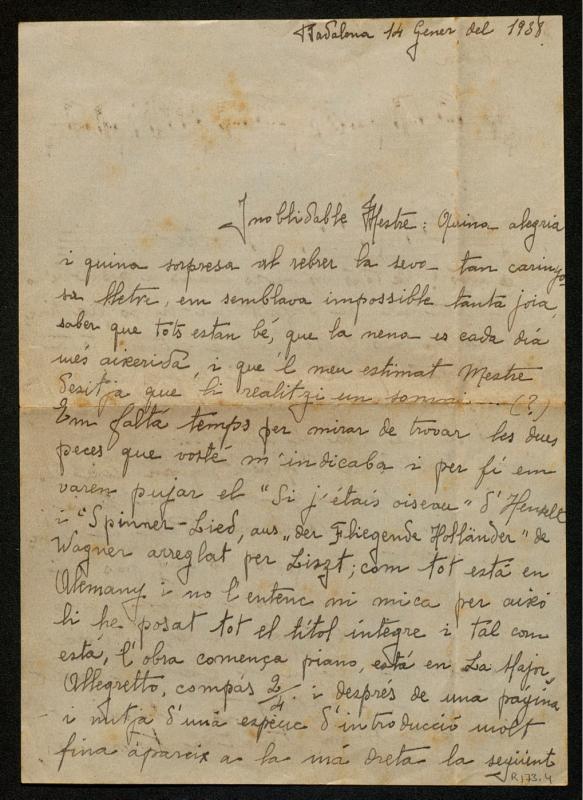 Badalona 14 Gener del 1938
Inoblidable Mestre: Quina alegria
i quina sorpresa al rebrer la seva tan carinyo-
sa lletre, em semblava impossible tanta joia,
saber que tots estan bé, que la nena es cada día
més aixerida, i que 'l meu estimat Mestre
desitja que li realitzi un somni .... (?)
Em faltá temps per mirar de trovar les dues
peces que vosté m'indicaba i per fí em
varen pujar el "Si j'étais oiseau" d'Henselt
i "Spinner-Lied, aus „der Fliegende Holländer" de
Wagner arreglat per Liszt; com tot está en
Alemany i no l'entenc ni mica per aixó
li he posat tot el títol integre i tal com
está, l'obra comença piano, está en La Major
Allegretto, compás 2/4 i després de una página
i mitja d'una espècie d'introducció molt
fina apareix a la má dreta la següent
R,73.4